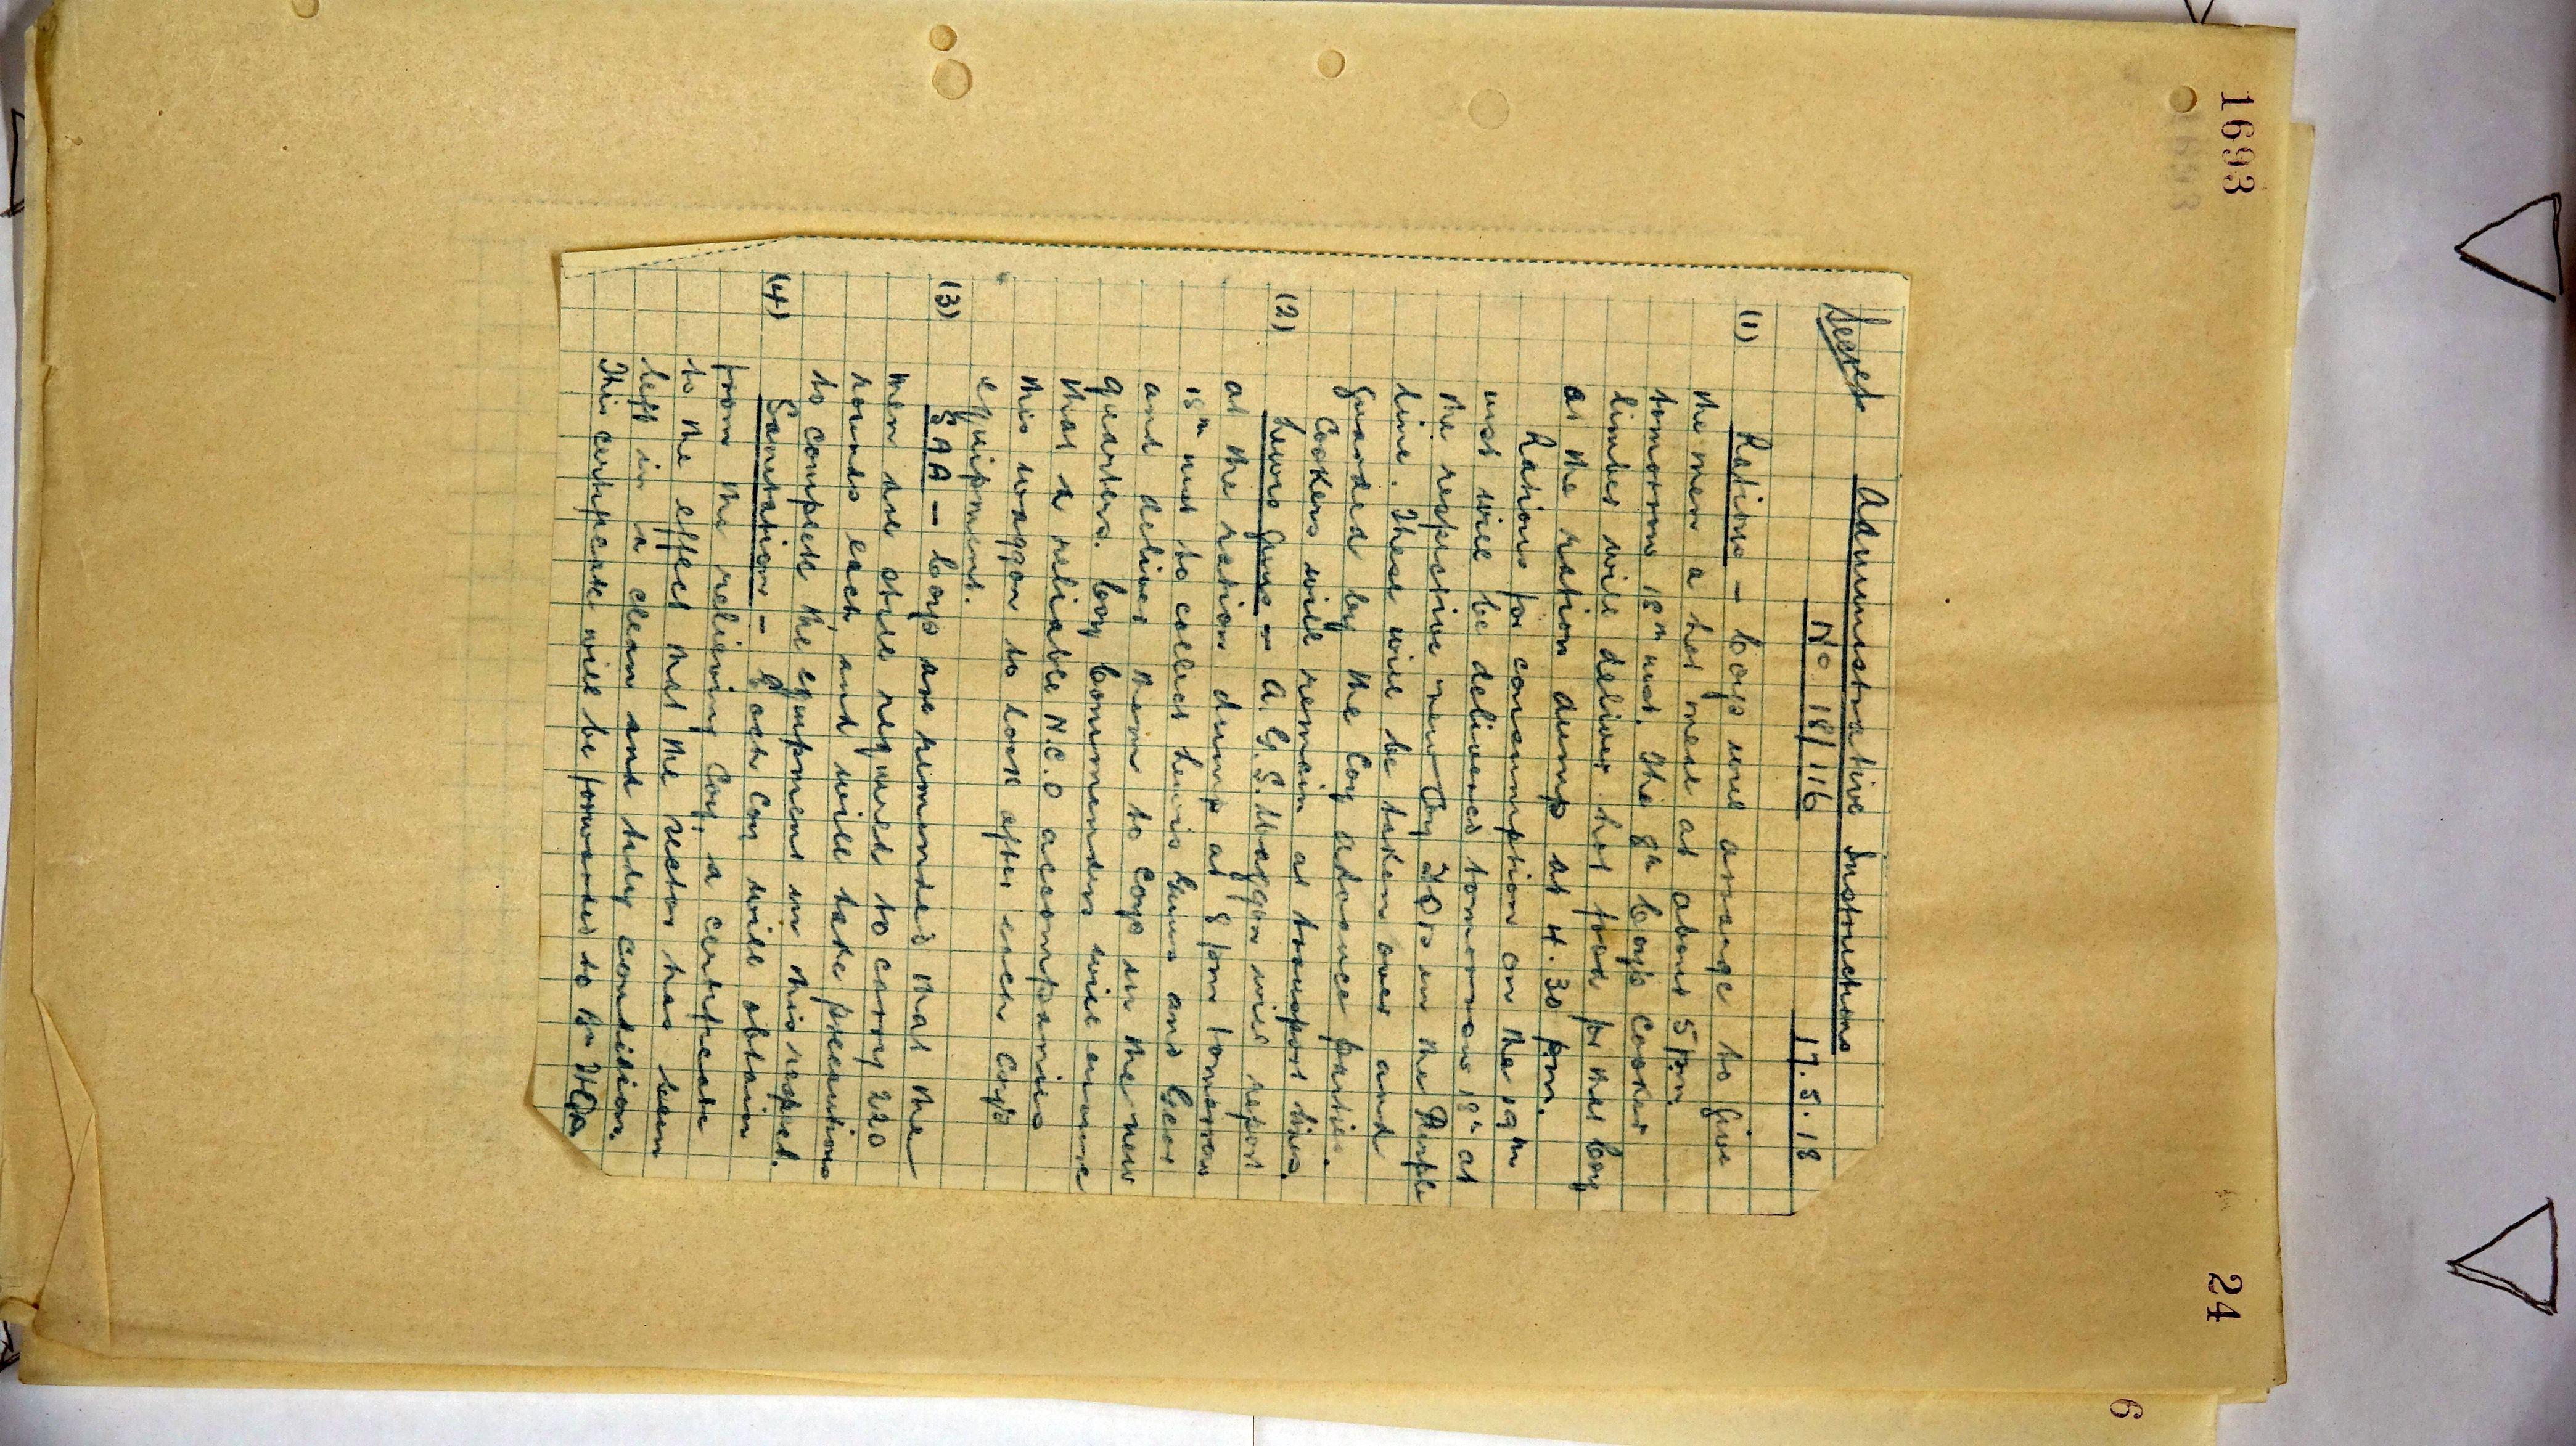 1693
24
Secret Administrative Instructions
No 18/116
17.5.18
(1) Rations - Coys will arrange to give
the men a hot meal at about 5 pm
tomorrow 18th inst. The 8th Coys Cooker
limber will deliver hot food for that Coy
at the ration dump at 4.30 pm.
Rations for consumption on the 19th
inst will be delivered tomorrow 18th at
the respective new Coy HQrs in the Purple
line. These will be taken over and
guarded by the Coy advance parties.
Cookers will remain at transport lines.
(2) Lewis Guns - A G.S. Waggon will report
at the ration dump at 8 pm tomorrow
18th inst to collect Lewis Guns and Gear
and deliver them to Coys in the new
quarters. Coy Commanders will ensure
that a reliable N.C.O accompanies
this waggon to look after each Coys
equipment.
(3) SAA - Coys are reminded that the
men are still required to carry 220
rounds each, and will take precautions
to complete the equipment in this respect.
(4) Sanitation - Each Coy will obtain
from the relieving Coy, a certificate
to the effect that the sector has been
left in a clean and tidy condition.
This certificate will be forwarded to Bn HQrs
6